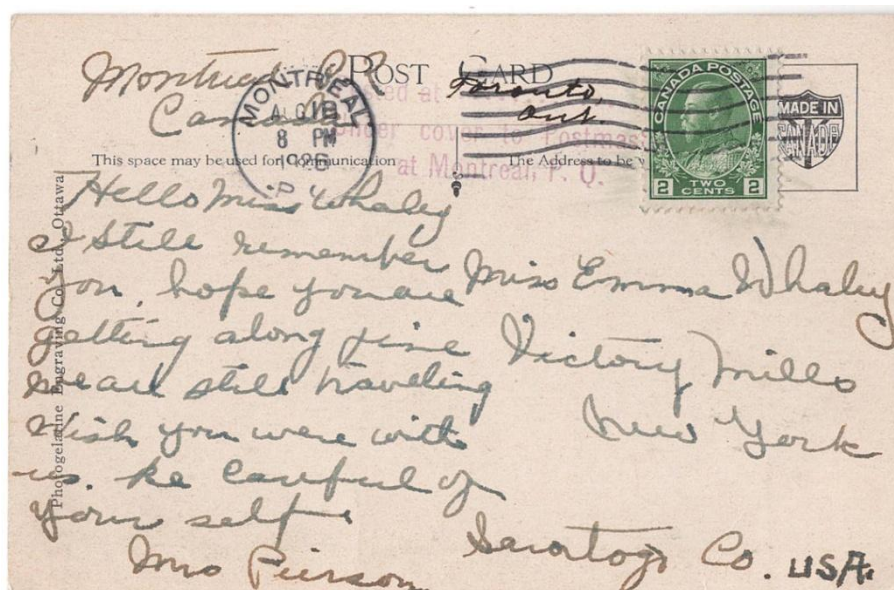 Montreal P.Q.
Canada
POST CARD
Toronto,
Ont.
MONTREAL
8 PM
192
P.
at
Under cover to Postmas
at Montreal, P. Q.
CANADA POSTAGE
2 TWO CENTS 2
MADE IN
CANADA
This space may be used for Communication
The Address to be w
Photogelatine Engraving Co. Ltd., Ottawa
Hello Miss Whaley
I still remember
you, hope you are
getting along fine
we are still traveling
wish you were with
us. be careful of
your self.
Mrs Pierson
Miss Emma Whaley
Victory Mills
New York
Saratoga Co. USA.